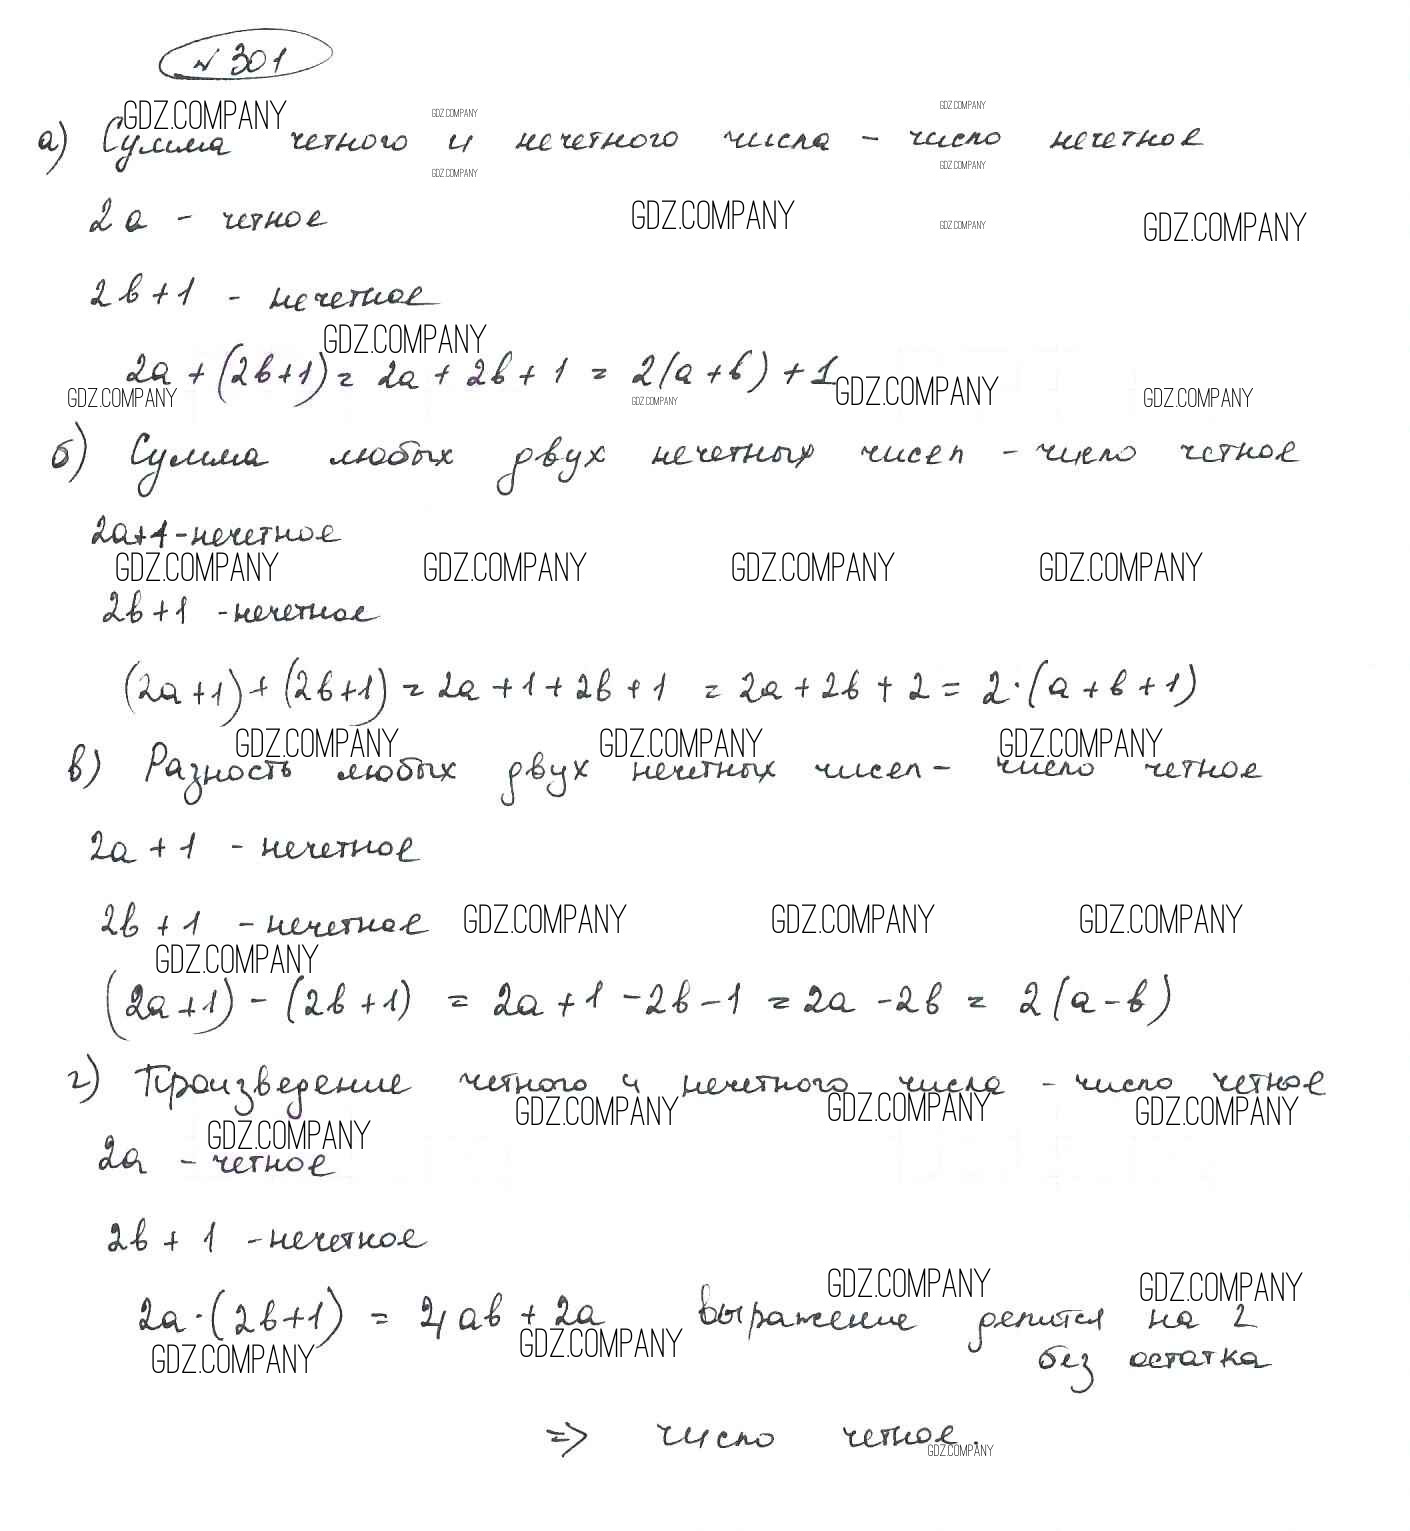 № 301
GDZ.COMPANY GDZ.COMPANY GDZ.COMPANY
а) Сумма четного и нечетного числа - число нечетное
GDZ.COMPANY GDZ.COMPANY
2a - четное GDZ.COMPANY GDZ.COMPANY GDZ.COMPANY
2b+1 - нечетное
GDZ.COMPANY
2a + (2b+1) = 2a + 2b + 1 = 2(a+b) + 1
GDZ.COMPANY GDZ.COMPANY GDZ.COMPANY GDZ.COMPANY
б) Сумма любых двух нечетных чисел - число четное
2a+1 - нечетное
GDZ.COMPANY GDZ.COMPANY GDZ.COMPANY GDZ.COMPANY
2b+1 - нечетное
(2a+1) + (2b+1) = 2a+1+2b+1 = 2a+2b+2 = 2·(a+b+1)
GDZ.COMPANY GDZ.COMPANY GDZ.COMPANY
в) Разность любых двух нечетных чисел - число четное
2a+1 - нечетное
2b+1 - нечетное GDZ.COMPANY GDZ.COMPANY GDZ.COMPANY
GDZ.COMPANY
(2a+1) - (2b+1) = 2a+1-2b-1 = 2a-2b = 2(a-b)
г) Произведение четного и нечетного числа - число четное
GDZ.COMPANY GDZ.COMPANY GDZ.COMPANY
GDZ.COMPANY
2a - четное
2b+1 - нечетное
GDZ.COMPANY GDZ.COMPANY
2a·(2b+1) = 4ab + 2a выражение делится на 2
GDZ.COMPANY GDZ.COMPANY без остатка
=> число четное.
GDZ.COMPANY